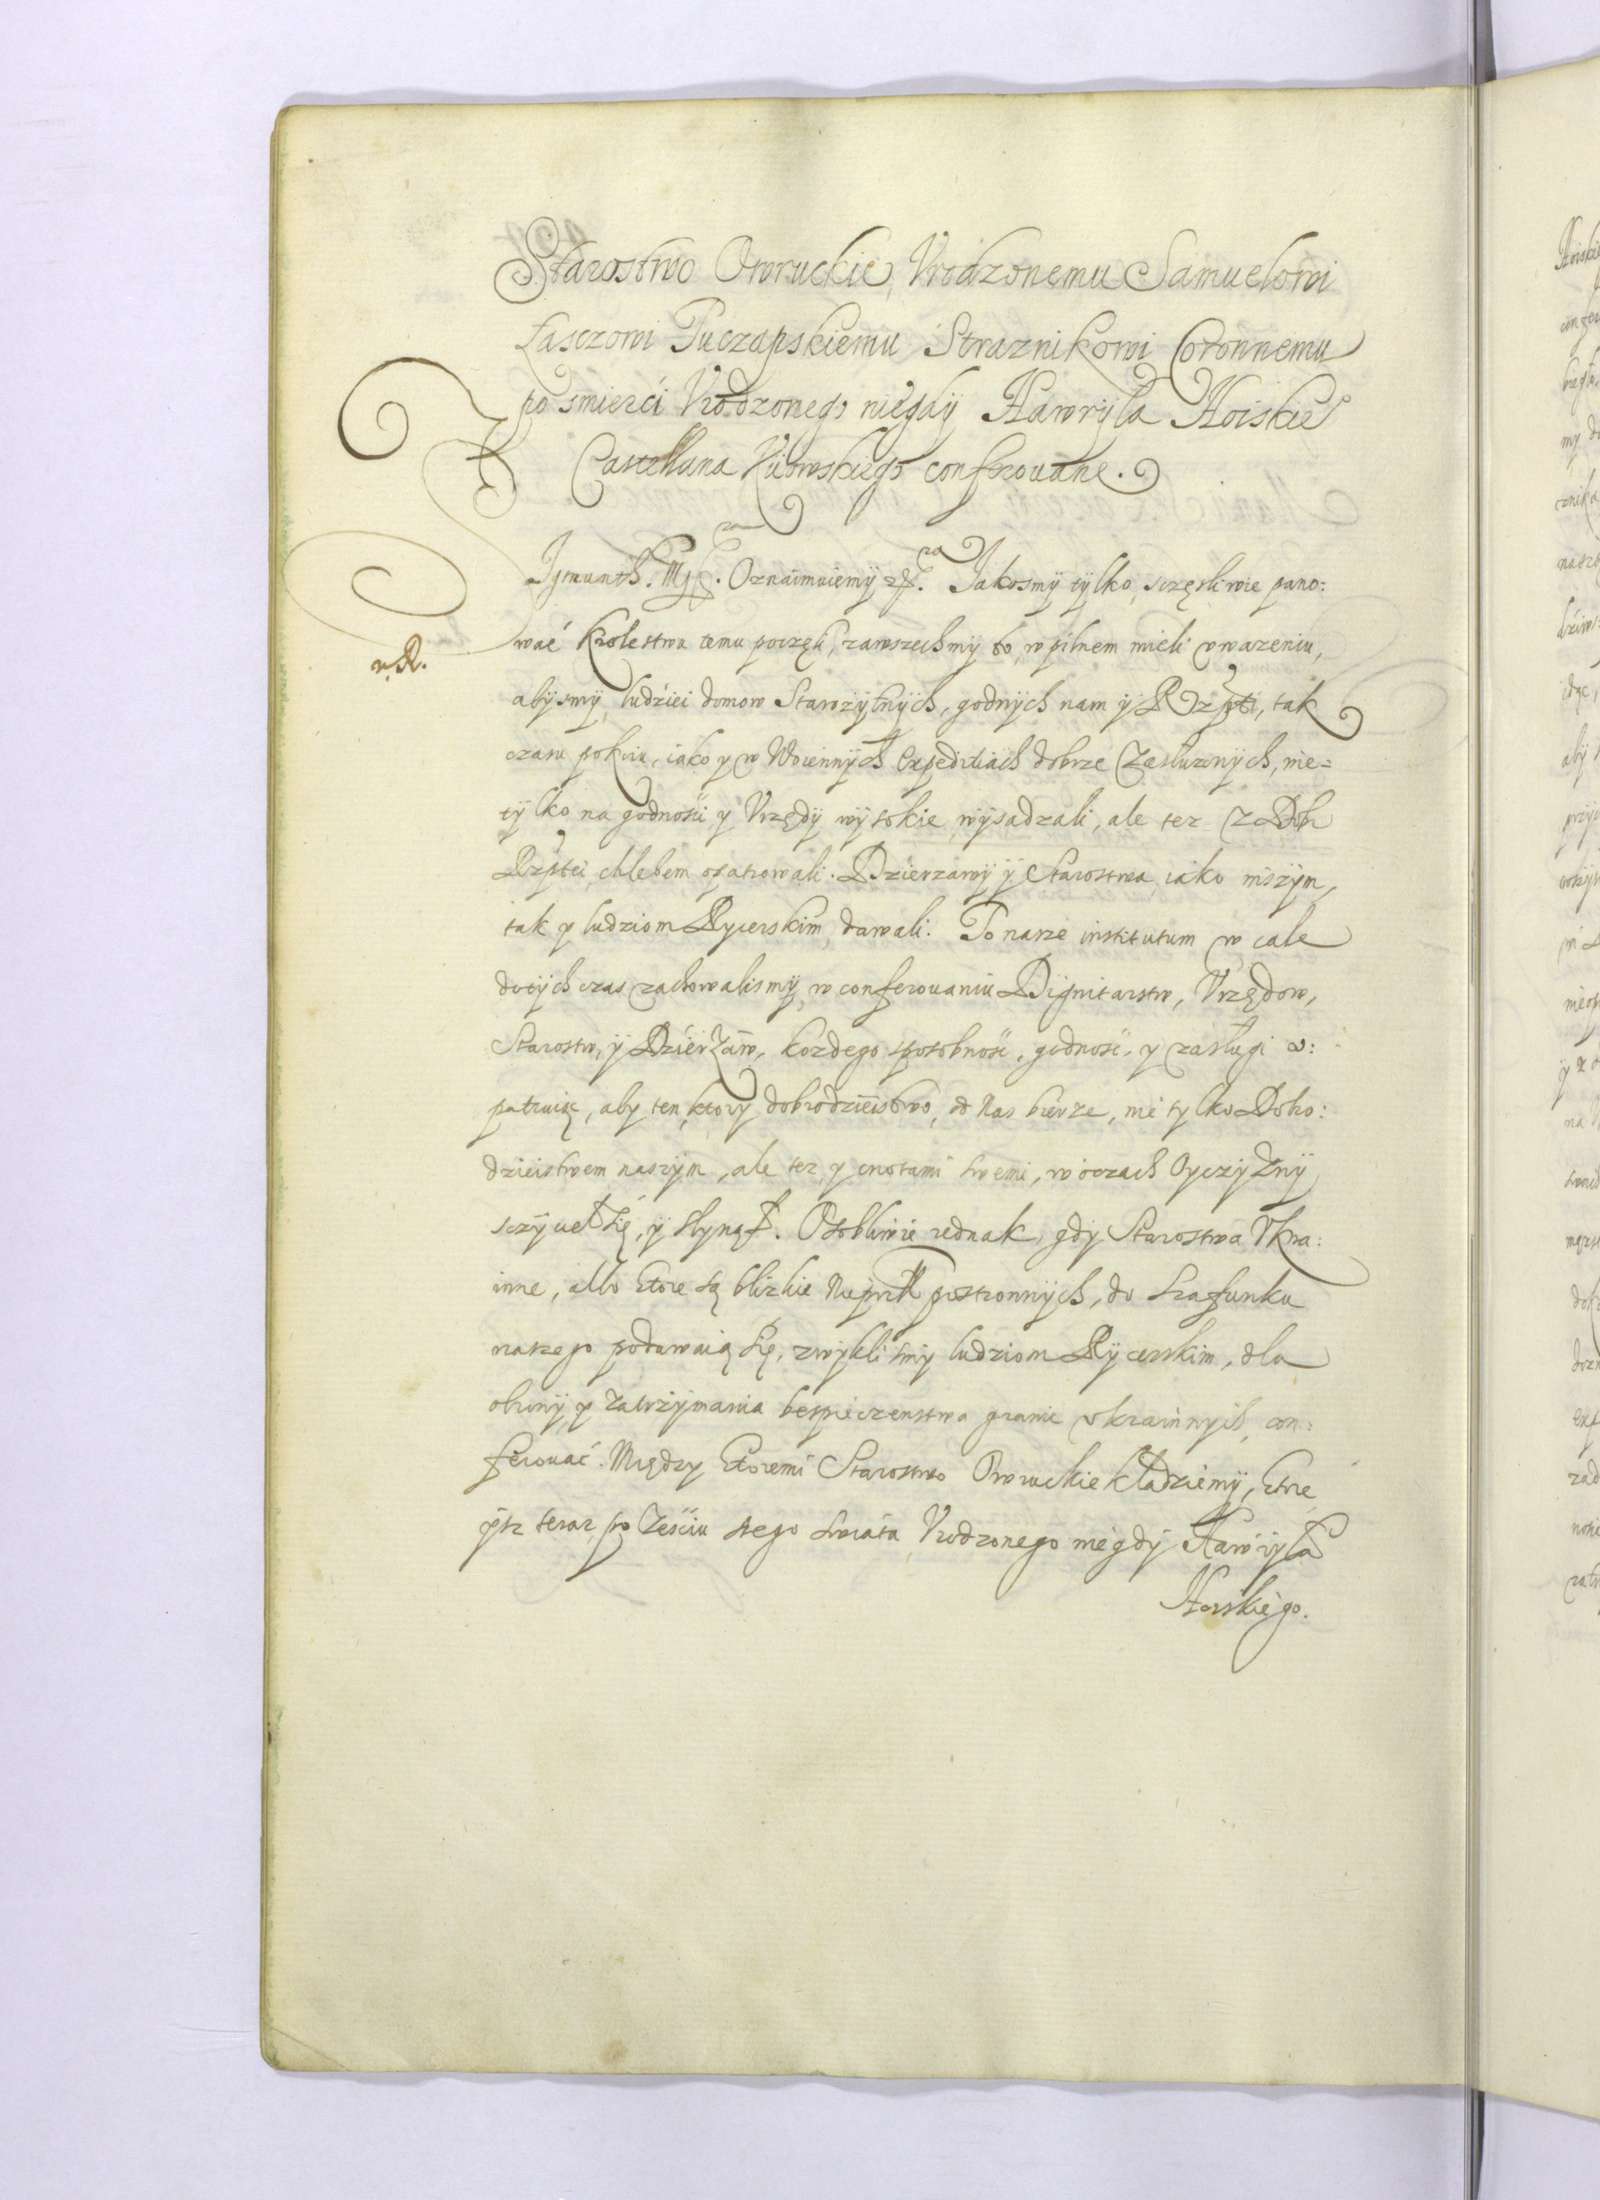 Starostwo Owruckie Vrodzonemu Samuelowi
Łasczowi Tuczapskiemu Straznikowi Coronnemu
po smierći Vrodzonego niegdy Hawryła Hoiskie°
Castellana Kiiowskiego conferowane.
Zÿgmunth. Oznaimuiemÿ Jakosmÿ tÿlko sczęsliwie pano:
wać Krolestwu temu poczęli, zawszechmÿ to w pilnem mieli vwazeniu,
v.R.
abÿsmÿ ludziei domow Starozÿtnÿch, godnÿch nam ÿ Rzptei, tak
czasu pokoiu, iako y w Woiennÿch Expeditiach dobrze Zasłuzonÿch, nie=
tÿlko na godnośći y Vrzędÿ wÿsokie wÿsadzali, ale tez Z Dobr
Rzptei chlebem opatrowali. Dzierzawÿ ÿ Starostwa iako inszÿm,
tak y ludziom Rycerskim dawali. To nasze institutum w cale
dotÿchczas zachowalismÿ w conferowaniu Dignitarstw, Vrzędow,
Starostw, ÿ Dzierzaw, kozdego sposobnośc, godnośc, y zasługi v:
patruiąc, aby ten, ktory dobrodzieistwo od Nas bierze, nie tylko Dobro:
dzieistwem naszÿm, ale tez y cnotami swemi, w oczach Oyczÿznÿ
sczÿcieł się, ÿ słynął. Osobliwie iednak, gdy Starostwa Vkra:
inne, albo ktore są blizkie Nieprzÿl postronnÿch, do szafunku
naszego podawaią się, zwÿkli smÿ ludziom Rÿcerskim, dla
obronÿ y zatrzÿmania bespieczenstwa granic vkrainnÿch, con:
ferowac. Między ktoremi Starostwo Owruckie kładziemÿ, ktore
ÿsz teraz po Ześciu stego swiata Vrodzonego niegdÿ Hawrÿła
Hoiskiego.